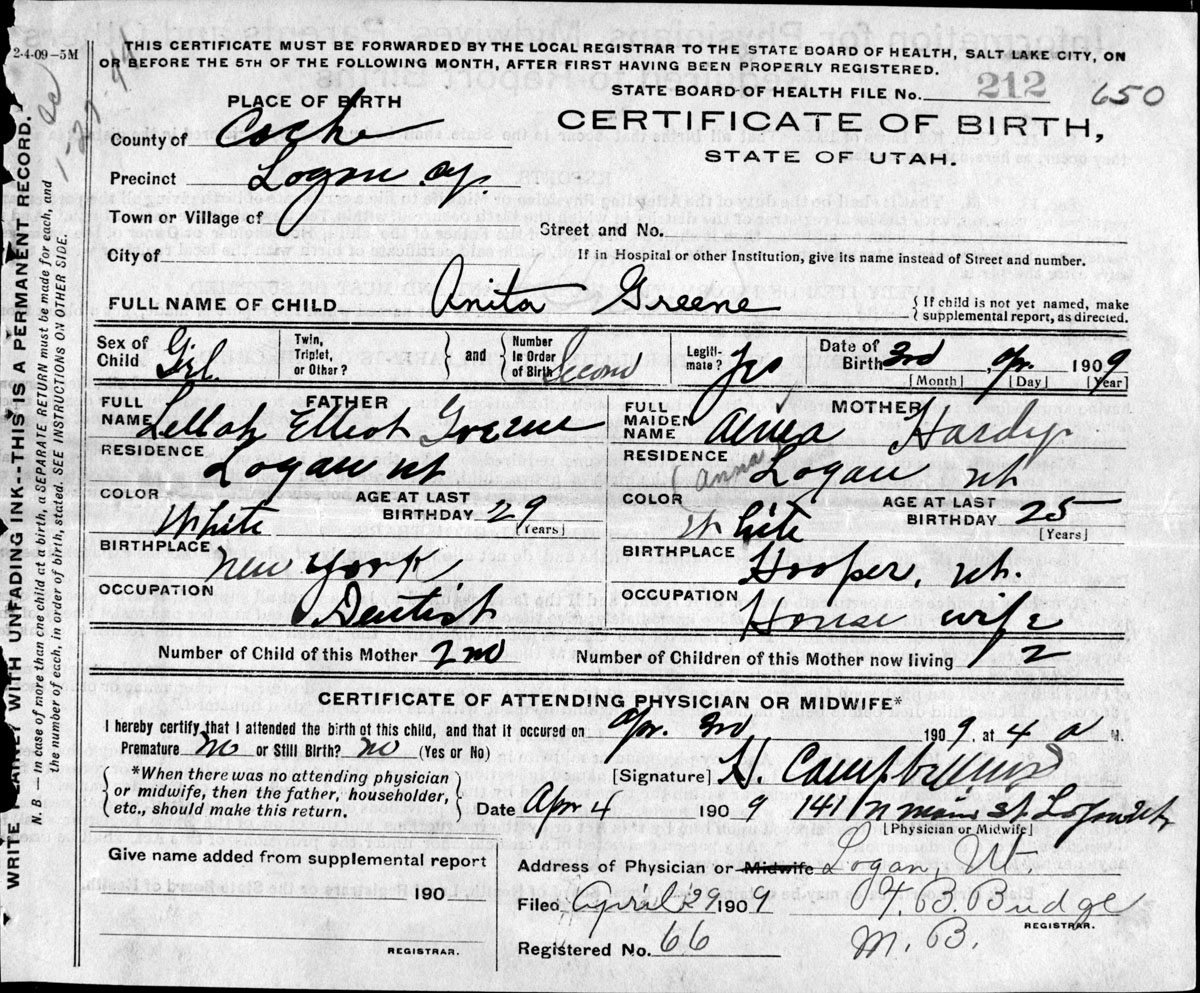 2-4-09-5M
THIS CERTIFICATE MUST BE FORWARDED BY THE LOCAL REGISTRAR TO THE STATE BOARD OF HEALTH, SALT LAKE CITY, ON
OR BEFORE THE 5TH OF THE FOLLOWING MONTH, AFTER FIRST HAVING BEEN PROPERLY REGISTERED.
STATE BOARD OF HEALTH FILE No. 212 650
PLACE OF BIRTH
CERTIFICATE OF BIRTH,
STATE OF UTAH.
County of Cache
Precinct Logan cy.
Town or Village of
Street and No.
City of
If in Hospital or other Institution, give its name instead of Street and number.
FULL NAME OF CHILD Anita Greene
{ If child is not yet named, make
supplemental report, as directed.
Sex of Child Girl.
Twin, Triplet, or Other?
and
Number in Order of Birth Second
Legitimate? Yes
Date of Birth 3rd, Apr. 1909
[Month] [Day] [Year]
FATHER
FULL NAME Lellah Elliot Greene
RESIDENCE Logan ut
COLOR White
AGE AT LAST BIRTHDAY 29
[Years]
BIRTHPLACE New York
OCCUPATION Dentist
MOTHER
FULL MAIDEN NAME Hardy
(Anna)
RESIDENCE Logan ut
COLOR White
AGE AT LAST BIRTHDAY 25
[Years]
BIRTHPLACE Hooper, ut.
OCCUPATION House wife
Number of Child of this Mother 2nd
Number of Children of this Mother now living 2
CERTIFICATE OF ATTENDING PHYSICIAN OR MIDWIFE*
I hereby certify that I attended the birth of this child, and that it occured on Apr. 3rd, 1909, at 4 a M.
Premature No or Still Birth? No (Yes or No)
{ *When there was no attending physician
or midwife, then the father, householder,
etc., should make this return. }
[Signature] H.
Date Apr 4 1909 141 n main st Logan Ut
[Physician or Midwife]
Give name added from supplemental report
190
REGISTRAR.
Address of Physician or Midwife Logan, Ut.
Filed April 29 1909 T. B. Budge
REGISTRAR.
Registered No. 66 M. B.
WRITE PLAINLY WITH UNFADING INK--THIS IS A PERMANENT RECORD.
N. B. — in case of more than one child at a birth, a SEPARATE RETURN must be made for each, and
the number of each, in order of birth, stated. SEE INSTRUCTIONS ON OTHER SIDE.